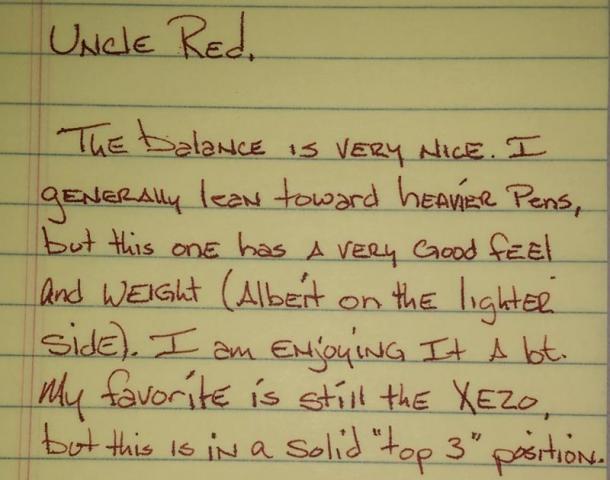 Uncle Red.
The balance is very nice. I
generally lean toward heavier Pens,
but this one has a very good feel
and weight (Albeit on the lighter
side). I am enjoying It a lot.
My favorite is still the XEZO,
but this is in a solid "top 3" position.